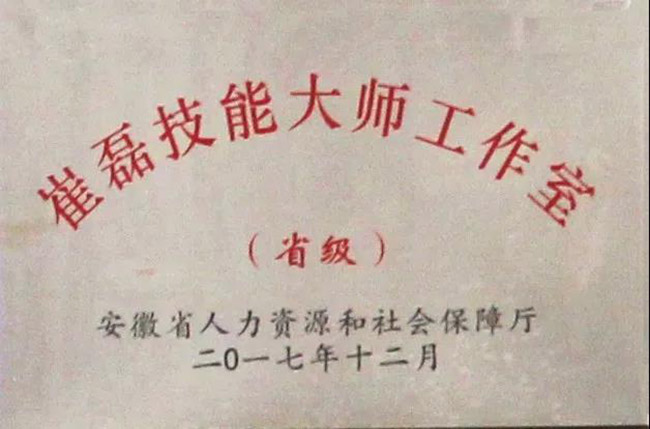 崔磊技能大师工作室
（省级）
安徽省人力资源和社会保障厅
二〇一七年十二月